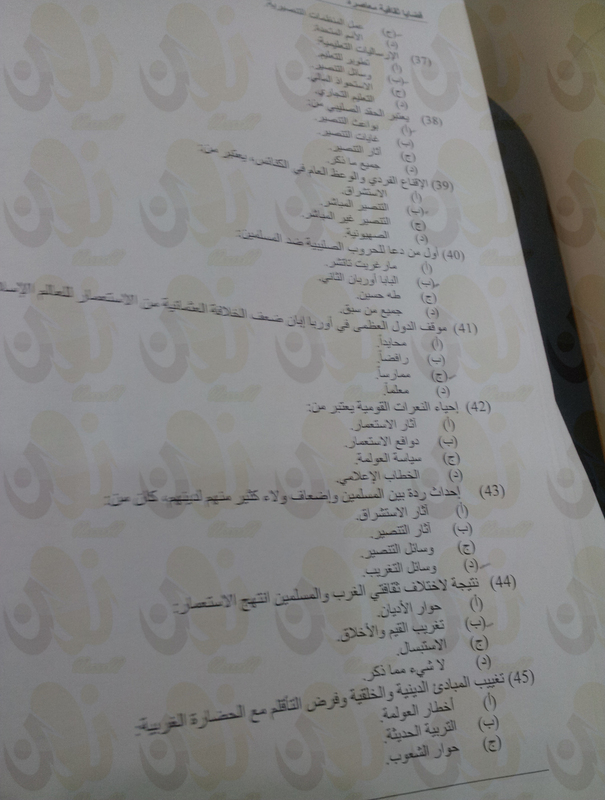 قضايا ثقافية معاصرة
ج) عمل المنظمات التنصيرية.
د) الأمم المتحدة.
(37) الإرساليات التعليمية:
أ) تطوير للتعليم.
ب) وسائل التنصير.
ج) الاستحواذ المالي.
د) التعليم التجاري.
(38) يعتبر الحقد الصليبي من:
أ) بواعث التنصير.
ب) غايات التنصير.
ج) آثار التنصير.
د) جميع ما ذكر.
(39) الإقناع الفردي والوعظ العام في الكنائس، يعتبر من:
أ) الاستشراق.
ب) التنصير المباشر.
ج) التنصير غير المباشر.
د) الصهيونية.
(40) أول من دعا للحروب الصليبية ضد المسلمين:
أ) مارغريت تاتشر.
ب) البابا أوربان الثاني.
ج) طه حسين.
د) جميع من سبق.
(41) موقف الدول العظمى في أوربا إبان ضعف الخلافة العثمانية من الاستعمار للعالم
أ) محايداً.
ب) رافضاً.
ج) ممارساً.
د) معلماً.
(42) إحياء النعرات القومية يعتبر من:
أ) آثار الاستعمار.
ب) دوافع الاستعمار.
ج) سياسة العولمة.
د) الخطاب الإعلامي.
(43) إحداث ردة بين المسلمين وإضعاف ولاء كثير منهم لدينهم، كان من:
أ) آثار الاستشراق.
ب) آثار التنصير.
ج) وسائل التنصير.
د) وسائل التغريب.
(44) نتيجة لاختلاف ثقافتي الغرب والمسلمين انتهج الاستعمار:
أ) حوار الأديان.
ب) تغريب القيم والأخلاق.
ج) الاستبسال.
د) لا شيء مما ذكر.
(45) تغييب المبادئ الدينية والخلقية وفرض التأقلم مع الحضارة الغربية:
أ) أخطار العولمة.
ب) التربية الحديثة.
ج) حوار الشعوب.